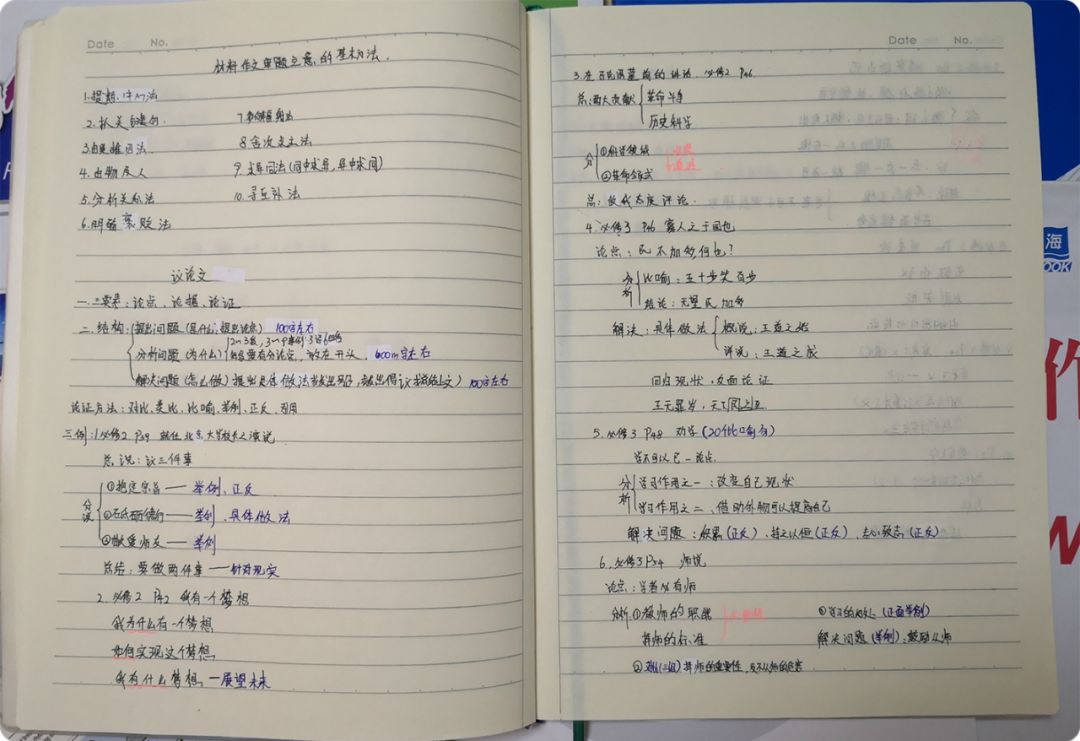 Date No.
材料作文审题立意的基本方法.
1.提炼中心法
2.抓关键句.
3.由果推因法.
4.由物及人
5.分析关系法
6.明辨褒贬法
8.舍次求主法
9.求异同法(同中求异,异中求同)
10.寻互补法
议论文
一.三要素:论点、论据、论证
二.结构:提出问题(是什么,提出论点) 100字左右
分析问题(为什么) 600字左右
解决问题(怎么做) 提出具体做法 100字左右
论证方法:对比、类比、比喻、举例、正反、引用
三.例:1.必修2 P49 就任北京大学校长之演说
总说:议三件事
分说
①抱定宗旨——举例、正反
②砥砺德行——举例、具体做法
③敬爱师友——举例
总结:要做两件事——针对现实
2.必修2 P42 我有一个梦想
我为什么有一个梦想
如何实现这个梦想,
我有什么梦想,—展望未来
Date No.
3.在马克思墓前的讲话.必修2 P46
总:两大贡献
革命斗争
历史科学
分
①科学领域
②革命
总:敌我态度评论.
4.必修3 P46 寡人之于国也
论点:民不加多何也?
分析
比喻:五十步笑百步
结论:无望民加多
解决:具体做法
概说:王道之始
详说:王道之成
回归现状,反面论证
王无罪岁,天下
5.必修3 P48 劝学(20个比喻句)
学不可以已—论点.
分析
学习作用之一:改变自己现状
学习作用之二、借助外物可以提高自己
解决问题:积累(正反)、持之以恒(正反)、专心致志(正反)
6.必修3 P54 师说
论点:学者必有师
分析:①教师的职能
择师的标准
(正面举例)
解决问题(举例):鼓励从师